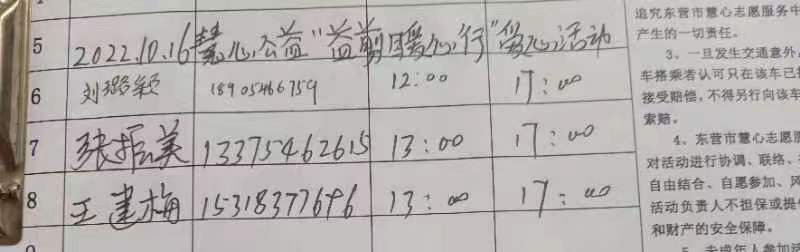 5 2022.10.16慧心公益"益剪暖心行"爱心活动
6 刘璐颖 18905466759 12:00 17:00
7 张振美 13375462615 13:00 17:00
8 王建梅 15318377696 13:00 17:00
追究东营市慧心志愿服务中
产生的一切责任。
3、一旦发生交通意外,
车搭乘者认可只在该车已
接受赔偿,不得另行向该车
索赔。
4、东营市慧心志愿服
对活动进行协调、联络、
自由结合、自愿参加、风
活动负责人不担保或提
和财产的安全保障。